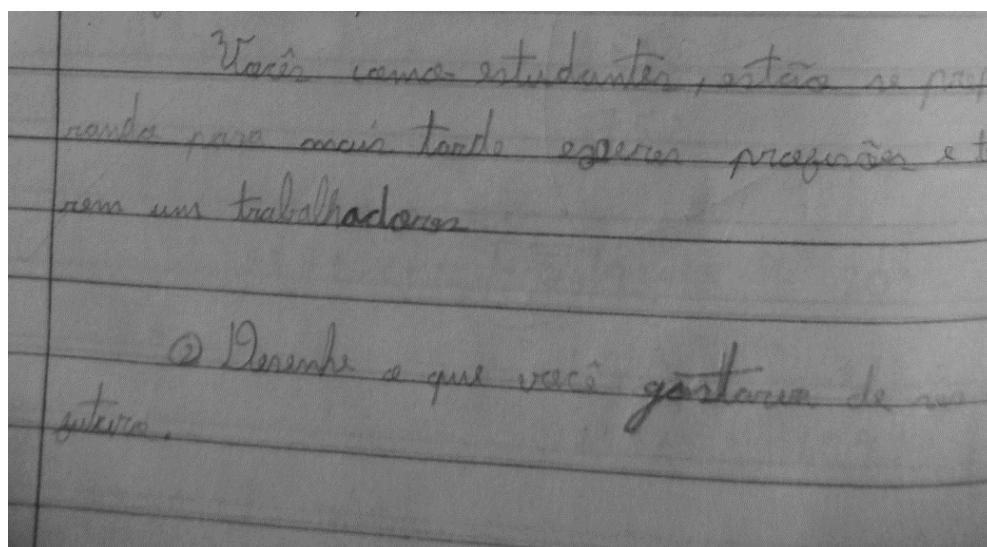 Vocês como estudantes, estão se prep
rando para mais tarde profisões e t
rem um trabalhadores
② Desenhe o que você gostaria de
futuro.